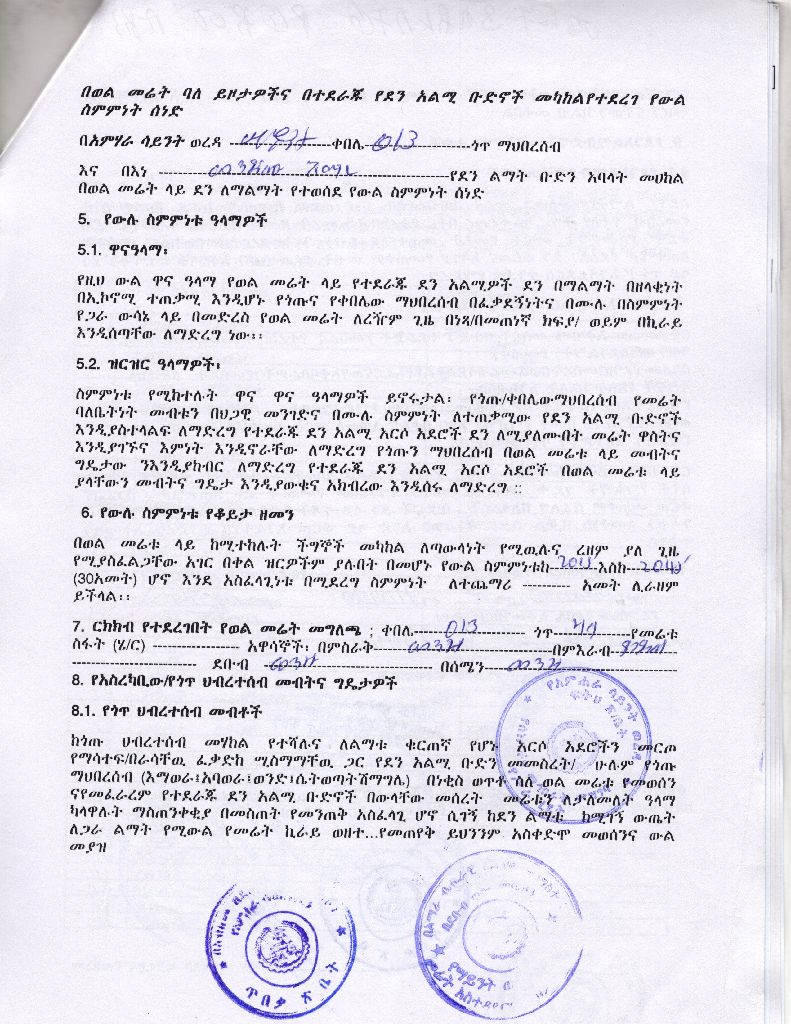 በወል መሬት ባለ ይዞታዎችና በተደራጁ የደን አልሚ ቡድኖች መካከልየተደረገ የውል
ስምምነት ሰነድ
በአምሃራ ሳይንት ወረዳ ---------------------ቀበሌ 013----------------ጎጥ ማህበረሰብ
እና በእነ ------------------------------------------------የደን ልማት ቡድን አባላት መሀከል
በወል መሬት ላይ ደን ለማልማት የተወሰደ የውል ስምምነት ሰነድ
5. የውሉ ስምምነቱ ዓላማዎች
5.1. ዋናዓላማ፡
የዚህ ውል ዋና ዓላማ የወል መሬት ላይ የተደራጁ ደን አልሚዎች ደን በማልማት በዘላቂነት
በኢኮኖሚ ተጠቃሚ እንዲሆኑ የጎጡና የቀበሌው ማህበረሰብ በፈቃደኝነትና በሙሉ በስምምነት
የጋራ ውሳኔ ላይ በመድረስ የወል መሬት ለረዥም ጊዜ በነጻ/በመጠነኛ ክፍያ/ ወይም በኪራይ
እንዲሰጣቸው ለማድረግ ነው፡፡
5.2. ዝርዝር ዓላማዎች፡
ስምምነቱ የሚከተሉት ዋና ዋና ዓላማዎች ይኖሩታል፡ የጎጡ/ቀበሌውማህበረሰብ የመሬት
ባለቤትነት መብቱን በህጋዊ መንገድና በሙሉ ስምምነት ለተጠቃሚው የደን አልሚ ቡድኖች
እንዲያስተላልፍ ለማድረግ የተደራጁ ደን አልሚ አርሶ አደሮች ደን ለሚያለሙበት መሬት ዋስትና
እንዲያገኙና እምነት እንዲኖራቸው ለማድረግ የጎጡን ማህበረሰብ በወል መሬቱ ላይ መብትና
ግዴታው ንእንዲያከብር ለማድረግ የተደራጁ ደን አልሚ አርሶ አደሮች በወል መሬቱ ላይ
ያላቸውን መብትና ግዴታ እንዲያውቁና አክብረው እንዲሰሩ ለማድረግ ::
6. የውሉ ስምምነቱ የቆይታ ዘመን
በወል መሬቱ ላይ ከሚተከሉት ችግኞች መካከል ለጣውላነት የሚዉሉና ረዘም ያለ ጊዜ
የሚያስፈልጋቸው አገር በቀል ዝርዎችም ያሉበት በመሆኑ የውል ስምምነቱከ--------እስከ--------
(30አመት) ሆኖ እንደ አስፈላጊነቱ በሚደረግ ስምምነት ለተጨማሪ ---------- አመት ሊራዘም
ይችላል፡፡
7. ርክክብ የተደረገበት የወል መሬት መግለጫ ; ቀበሌ------013------------ ጎጥ-----------የመሬቱ
ስፋት (ሄ/ር) ----------------- አዋሳኞች፡ በምስራቅ-----------------------------በምእራብ-----------
------------------------ ደቡብ -------------------------------- በሰሜን--------------------------------
8. የአስረካቢው/የጎጥ ህብረተሰብ መብትና ግዴታዎች
8.1. የጎጥ ህብረተሰብ መብቶች
ከጎጡ ሀብረተሰብ መሃከል የተሻሉና ለልማቱ ቁርጠኛ የሆኑ አርሶ አደሮችን መርጦ
የማሳተፍ/በራሳቸዉ ፈቃድከ ሚስማማቸዉ ጋር የደን አልሚ ቡድን መመስረት/ ሁሉም የጎጡ
ማህበረሰብ (እማወራ፣አባወራ፣ወንድ፣ሴትወጣትሽማግሌ) በነቂስ ወጥቶ ስለ ወል መሬቱ የመወሰን
ናየመፈራረም የተደራጁ ደን አልሚ ቡድኖች በውላቸው መሰረት መሬቱን ለታለመለት ዓላማ
ካላዋሉት ማስጠንቀቂያ በመስጠት የመንጠቅ አስፈላጊ ሆኖ ሲገኝ ከደን ልማቱ ከሚገኝ ውጤት
ለጋራ ልማት የሚውል የመሬት ኪራይ ወዘተ...የመጠየቅ ይህንንም አስቀድሞ መወሰንና ውል
መያዝ
ጥበቃ ጽ ቤት